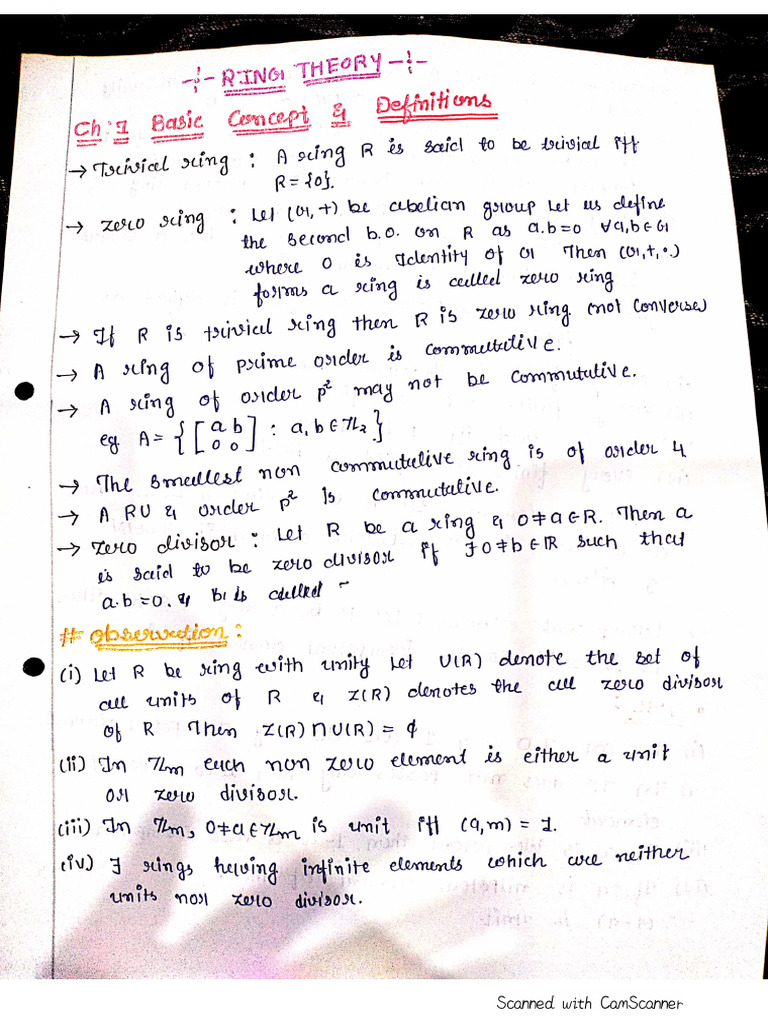 -:- RING THEORY -:-
Ch: 1 Basic Concept & Definitions
→ Trivial ring : A ring R is said to be trivial iff
R = {0}.
→ zero ring : Let (G, +) be abelian group Let us define
the second b.o. on R as a.b=0 ∀ a,b ∈ G
where 0 is Identity of G Then (G,+,•)
forms a ring is called zero ring
→ If R is trivial ring then R is zero ring (not converse)
→ A ring of prime order is commutative.
→ A ring of order p² may not be commutative.
eg A = { [ a b
0 0 ] : a, b ∈ ℤ₂ }
→ The smallest non commutative ring is of order 4
→ A RU & order p² is commutative.
→ zero divisor : Let R be a ring & 0 ≠ a ∈ R. Then a
is said to be zero divisor if ∃ 0 ≠ b ∈ R such that
a.b = 0. & b is called
# Observation :
(i) Let R be ring with unity Let U(R) denote the set of
all units of R & Z(R) denotes the all zero divisor
of R Then Z(R) ∩ U(R) = ϕ
(ii) In ℤm each non zero element is either a unit
or zero divisor.
(iii) In ℤm, 0 ≠ a ∈ ℤm is unit iff (a, m) = 1.
(iv) ∃ rings having infinite elements which are neither
units nor zero divisor.
Scanned with CamScanner